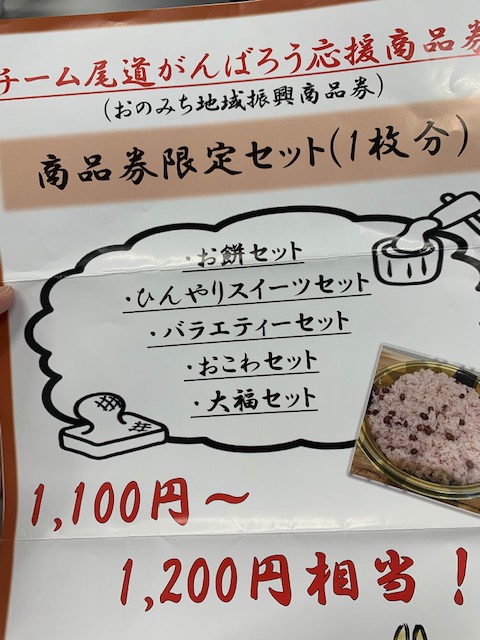 チーム尾道がんばろう応援商品券
(おのみち地域振興商品券)
商品券限定セット(1枚分)
・お餅セット
・ひんやりスイーツセット
・バラエティーセット
・おこわセット
・大福セット
1,100円～
1,200円相当！